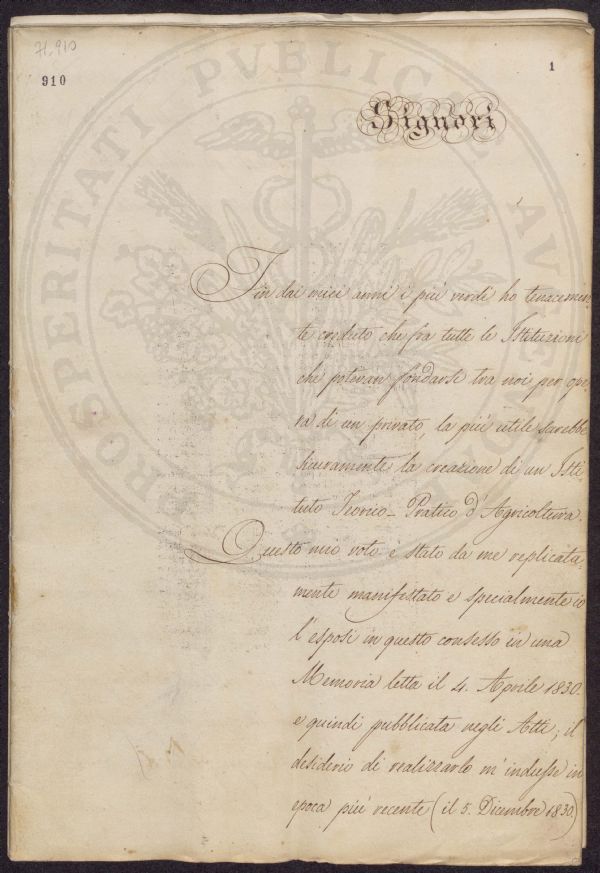 71.910
910
1
Signori
Fin dai miei anni i più verdi ho tenacemen=
te creduto che fra tutte le Istituzioni
che potevan fondarsi tra noi per ope=
ra di un privato, la più utile sarebbe
sicuramente la creazione di un Isti
tuto Teorico-Pratico d'Agricoltura.
Questo mio voto è stato da me replicata=
mente manifestato e specialmente io
l'esposi in questo consesso in una
Memoria letta il 4. Aprile 1830.
e quindi pubblicata negli Atti; il
desiderio di realizzarlo m'indusse in
epoca più recente (il 5. Dicembre 1830.)
PROSPERITATI PVBLICAE AVGE